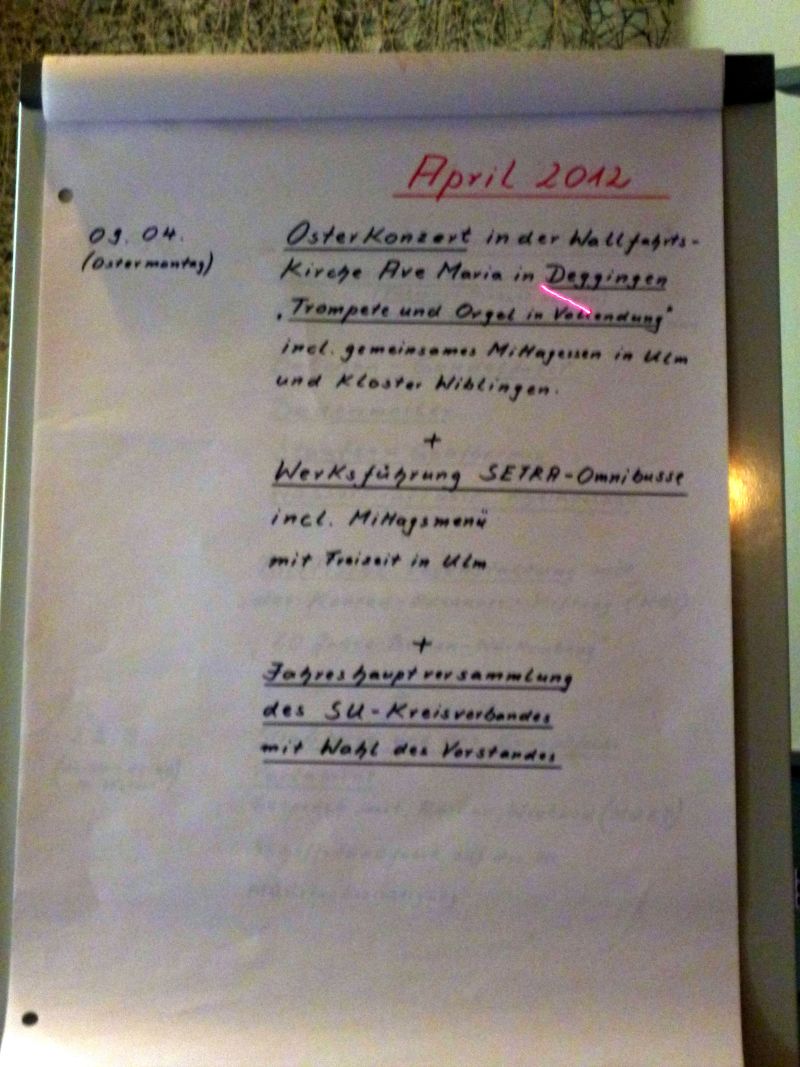 April 2012
09. 04.
(Ostermontag)
Osterkonzert in der Wallfahrts-
kirche Ave Maria in Deggingen
„Trompete und Orgel in Vollendung"
incl. gemeinsames Mittagessen in Ulm
und Kloster Wiblingen.
+
Werksführung SETRA-Omnibusse
incl. Mittagsmenü
mit Freizeit in Ulm
+
Jahreshauptversammlung
des SU-Kreisverbandes
mit Wahl des Vorstandes